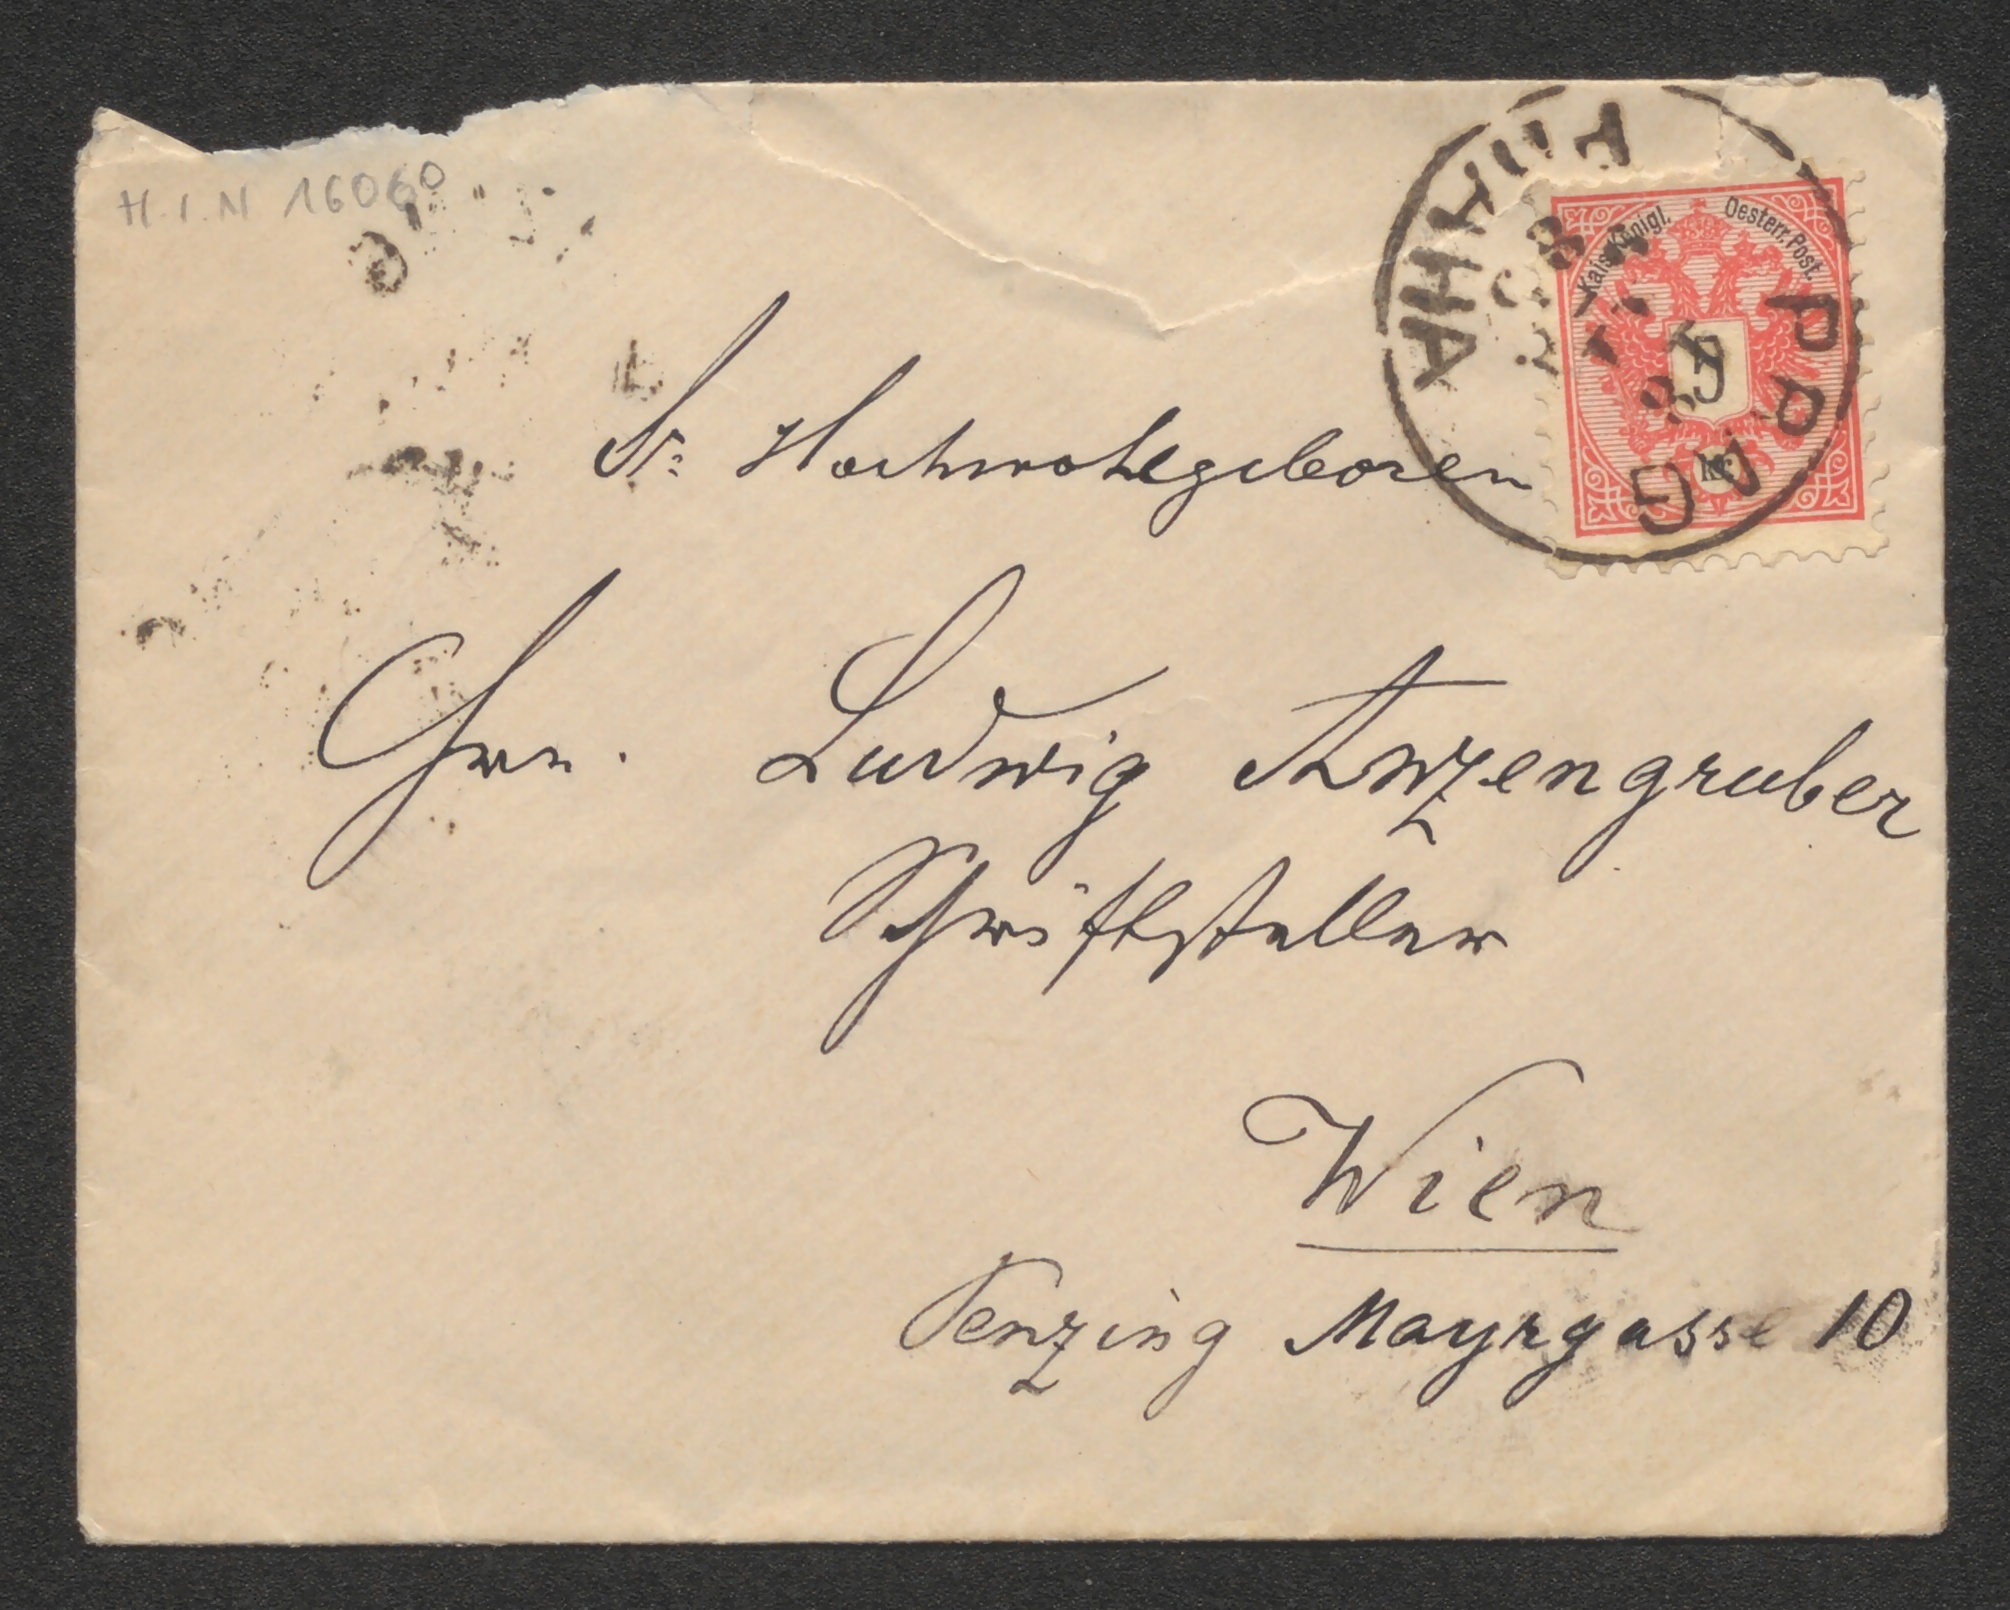 H.I.N 16060
PRAG PRAHA
Kais. Königl. Oesterr. Post.
5
kr.
Sr Hochwohlgeboren
Hrn. Ludwig Anzengruber
Schriftsteller
Wien
Penzing Mayrgasse 10